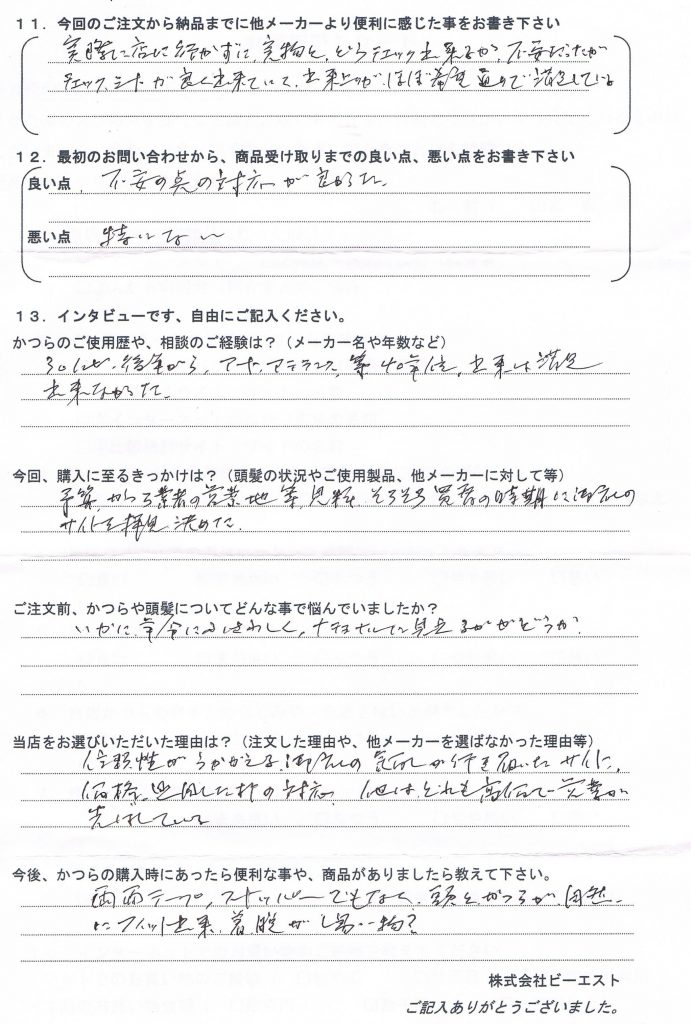 １１．今回のご注文から納品までに他メーカーより便利に感じた事をお書き下さい
実際に店に行かずに、実物を、どうチェック出来るか、不安だったが
チェックシートが良く出来ていて、出来上りが、ほぼ希望通りで満足している
１２．最初のお問い合わせから、商品受け取りまでの良い点、悪い点をお書き下さい
良い点　不安の点の対応が良かった。
悪い点　特にない
１３．インタビューです、自由にご記入ください。
かつらのご使用歴や、相談のご経験は？（メーカー名や年数など）
30代後半から、アート、アデランス、等40年位、出来は満足
出来なかった。
今回、購入に至るきっかけは？（頭髪の状況やご使用製品、他メーカーに対して等）
予算、かつら業者の営業地等、見料、そろそろ買替の時期に御店の
サイトを拝見、決めた。
ご注文前、かつらや頭髪についてどんな事で悩んでいましたか？
いかに、年令にふさわしく、ナチュナルに見えるかがどうか。
当店をお選びいただいた理由は？（注文した理由や、他メーカーを選ばなかった理由等）
信頼性がうかがえる御店の気配が行き届いたサイト、
価格、した折の対応、他は、どれも高価で営業が
先ばしている
今後、かつらの購入時にあったら便利な事や、商品がありましたら教えて下さい。
両面テープ、ストッパーでもなく、頭とかつらが、自然
にフィット出来、着脱がし易い物？
株式会社ビーエスト
ご記入ありがとうございました。